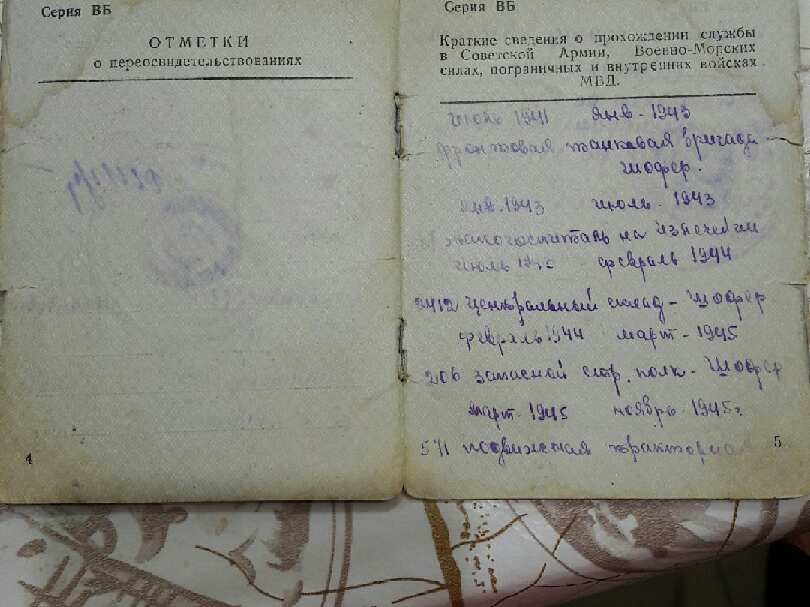 Серия ВБ
ОТМЕТКИ
о переосвидетельствованиях
4
Серия ВБ
Краткие сведения о прохождении службы
в Советской Армии, Военно-Морских
силах, пограничных и внутренних войсках
МВД.
июль 1941 янв - 1943
фронтовая танковая бригада
шофер.
янв. 1943 июль - 1943
на излечении
июль февраль 1944
2412 центральный склад - шофер
февраль 1944 март - 1945
206 запасной стр. полк - шофер
март - 1945 ноябрь - 1945 г
571 подвижная
5